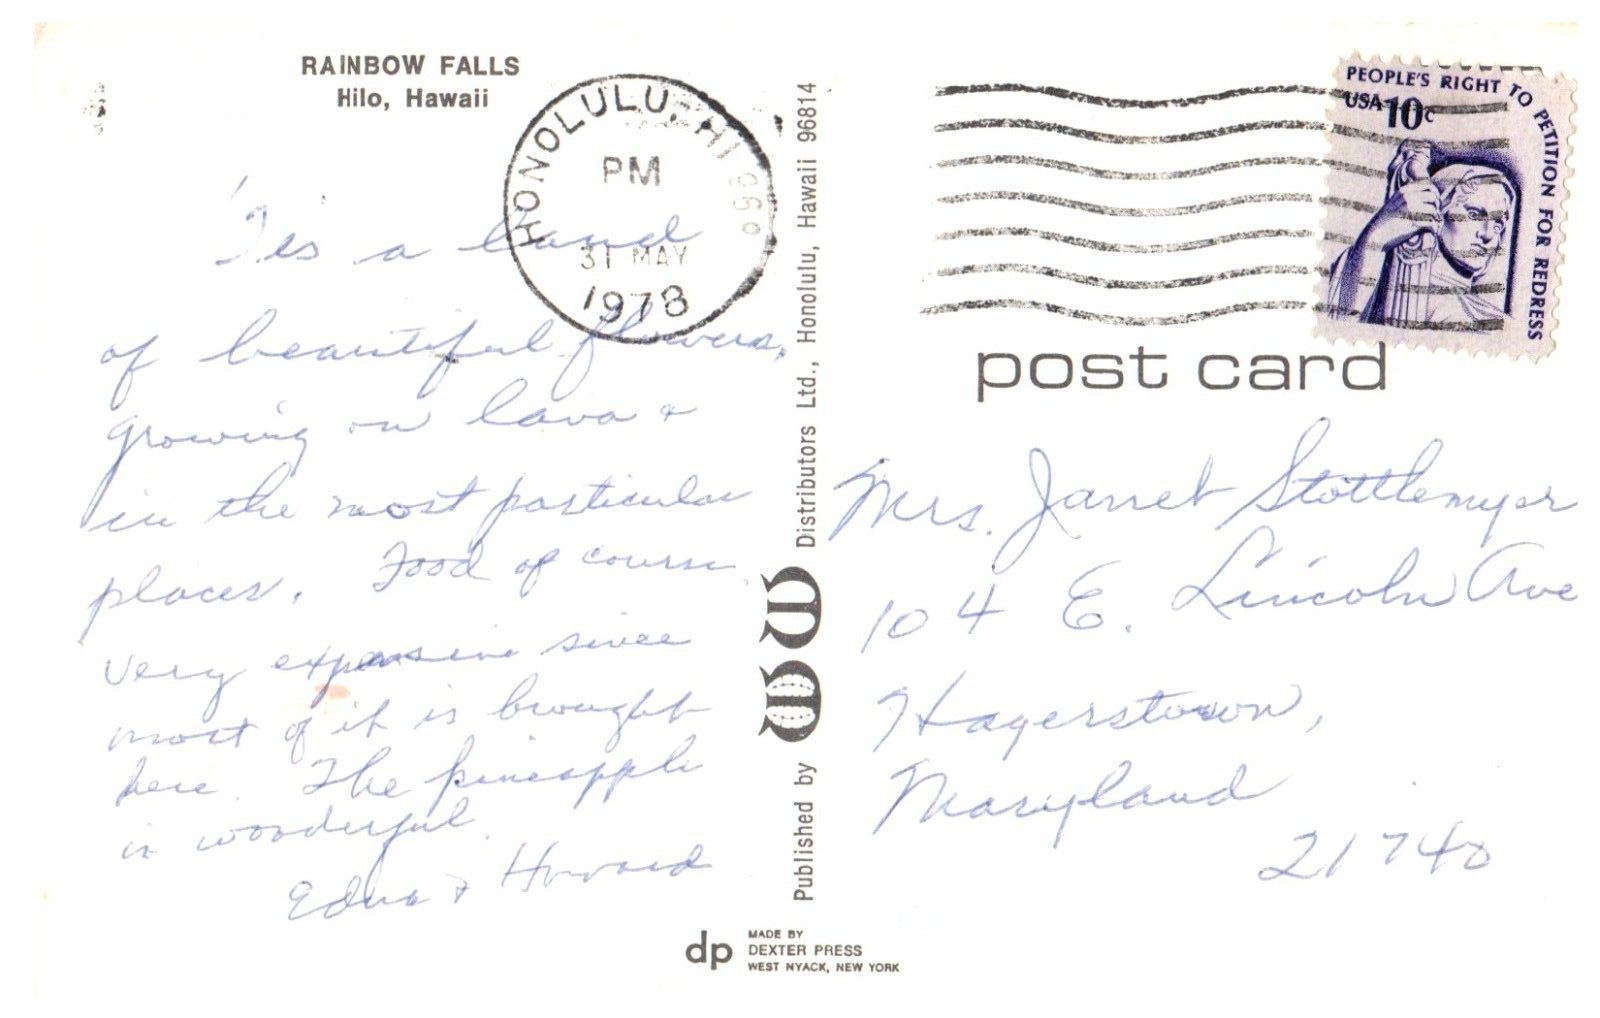 RAINBOW FALLS
Hilo, Hawaii
HONOLULU, HI 968
PM
31 MAY
1978
'Tis a land
of beautiful flowers,
growing on lava &
in the most particular
places. Food of course
very expensive since
most of it is brought
here. The pineapple
is wonderful.
Edna & Howard
Published by Distributors Ltd., Honolulu, Hawaii 96814
dp MADE BY
DEXTER PRESS
WEST NYACK, NEW YORK
PEOPLE'S RIGHT TO PETITION FOR REDRESS
USA 10c
post card
Mrs. Janet Stottlemyer
104 E. Lincoln Ave
Hagerstown,
Maryland
21740